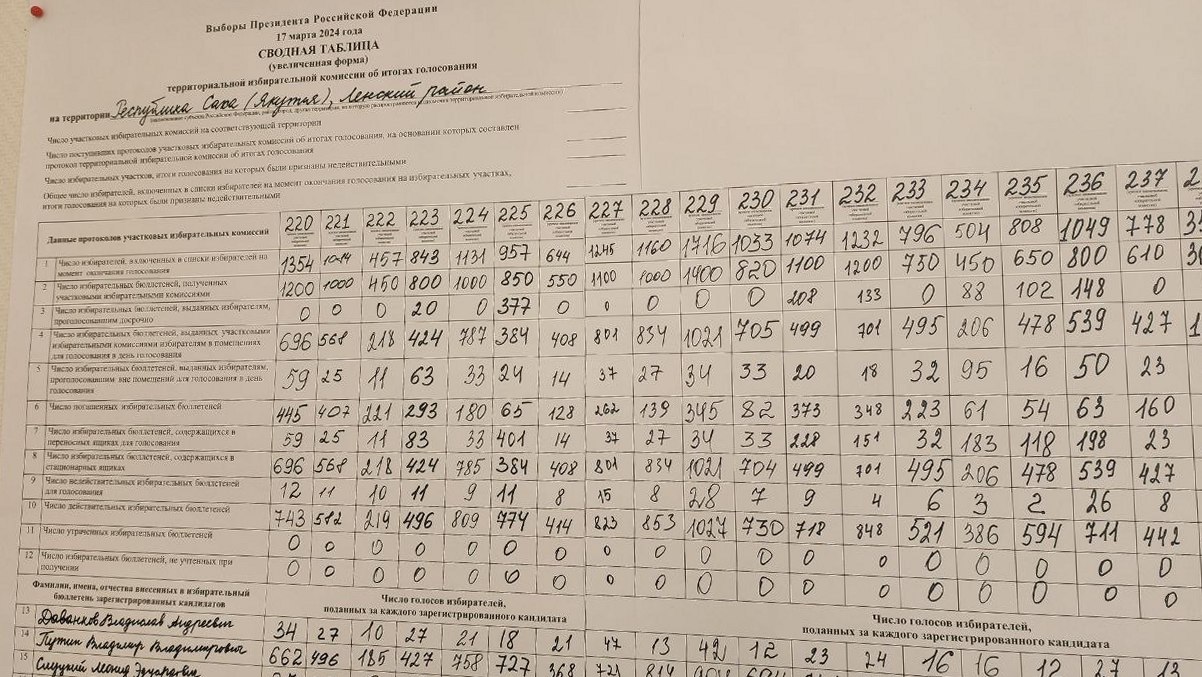 Выборы Президента Российской Федерации
17 марта 2024 года
СВОДНАЯ ТАБЛИЦА
(увеличенная форма)
территориальной избирательной комиссии об итогах голосования
на территории Республика Саха (Якутия), Ленский район
Число участковых избирательных комиссий на соответствующей территории
Число поступивших протоколов участковых избирательных комиссий об итогах голосования, на основании которых составлен
протокол территориальной избирательной комиссии об итогах голосования
Число избирательных участков, итоги голосования на которых были признаны недействительными
Общее число избирателей, включенных в списки избирателей на момент окончания голосования на избирательных участках,
итоги голосования на которых были признаны недействительными
Данные протоколов участковых избирательных комиссий 220 221 222 223 224 225 226 227 228 229 230 231 232 233 234 235 236 237
1 Число избирателей, включенных в списки избирателей на
момент окончания голосования 1354 1014 457 843 1131 957 644 1245 1160 1716 1033 1074 1232 796 504 808 1049 778
2 Число избирательных бюллетеней, полученных
участковыми избирательными комиссиями 1200 1000 450 800 1000 850 550 1100 1000 1400 820 1100 1200 750 450 650 800 610
3 Число избирательных бюллетеней, выданных избирателям,
проголосовавшим досрочно 0 0 0 20 0 377 0 0 0 0 0 208 133 0 88 102 148 0
4 Число избирательных бюллетеней, выданных участковыми
избирательными комиссиями избирателям в помещениях
для голосования в день голосования 696 568 218 424 787 384 408 801 834 1021 705 499 701 495 206 478 539 427
5 Число избирательных бюллетеней, выданных избирателям,
проголосовавшим вне помещений для голосования в день
голосования 59 25 11 63 33 24 14 37 27 34 33 20 18 32 95 16 50 23
6 Число погашенных избирательных бюллетеней 445 407 221 293 180 65 128 262 139 345 82 373 348 223 61 54 63 160
7 Число избирательных бюллетеней, содержащихся в
переносных ящиках для голосования 59 25 11 83 33 401 14 37 27 34 33 228 151 32 183 118 198 23
8 Число избирательных бюллетеней, содержащихся в
стационарных ящиках 696 568 218 424 785 384 408 801 834 1021 704 499 701 495 206 478 539 427
9 Число недействительных избирательных бюллетеней
для голосования 12 11 10 11 9 11 8 15 8 28 7 9 4 6 3 2 26 8
10 Число действительных избирательных бюллетеней 743 582 219 496 809 774 414 823 853 1027 730 718 848 521 386 594 711 442
11 Число утраченных избирательных бюллетеней 0 0 0 0 0 0 0 0 0 0 0 0 0 0 0 0 0 0
12 Число избирательных бюллетеней, не учтенных при
получении 0 0 0 0 0 0 0 0 0 0 0 0 0 0 0 0 0 0
Фамилии, имена, отчества внесенных в избирательный
бюллетень зарегистрированных кандидатов
Число голосов избирателей,
поданных за каждого зарегистрированного кандидата
Число голосов избирателей,
поданных за каждого зарегистрированного кандидата
13 Даванков Владислав Андреевич 34 27 10 27 21 18 21 47 13 42 12 23 24 16 16 12 27 13
14 Путин Владимир Владимирович 662 496 185 427 758 727 368 721 814
15 Слуцкий Леонид Эдуардович